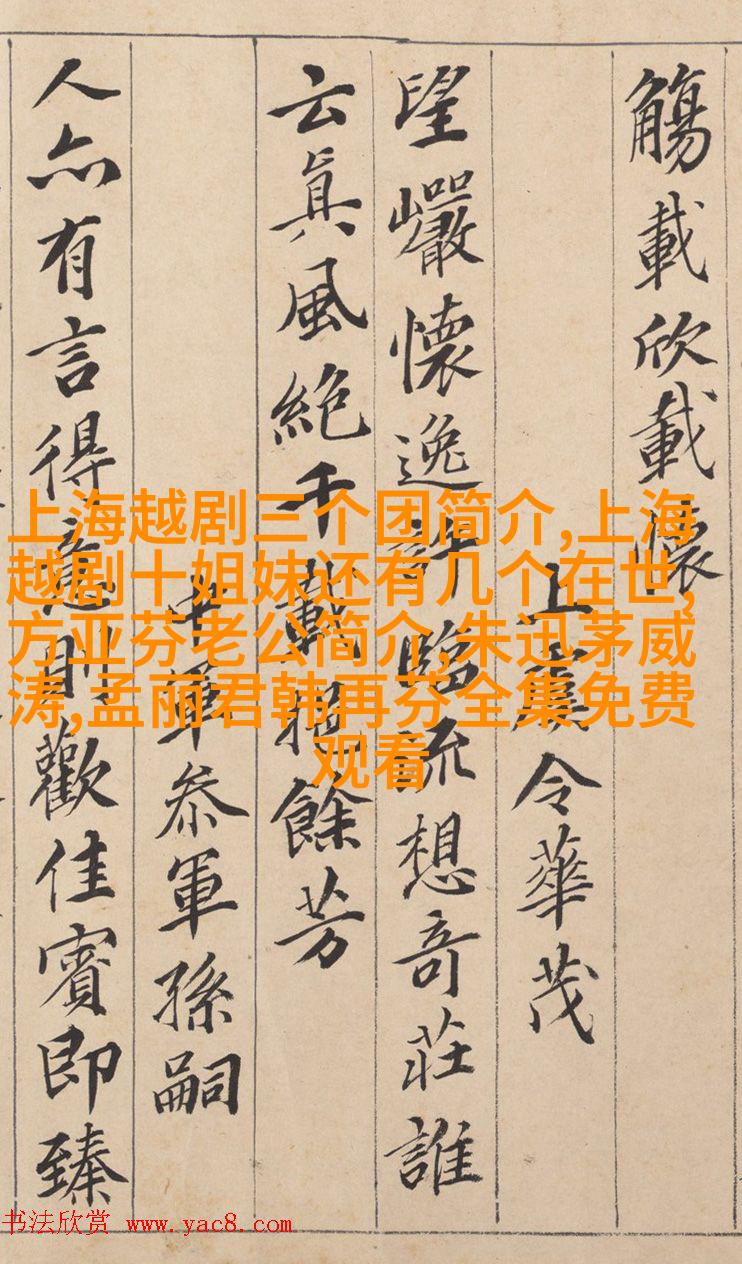 觴載欣載懷
上虞令華茂
望巖懷逸許臨流想奇莊誰
云眞風絶千載挹餘芳
中軍叅軍孫嗣
人亦有言得意則歡佳賓即臻
上海越剧三个团简介,上海
越剧十姐妹还有几个在世,
方亚芬老公简介,朱迅茅威
涛,孟丽君韩再芬全集免费
观看
书法欣赏 www.yac8.com